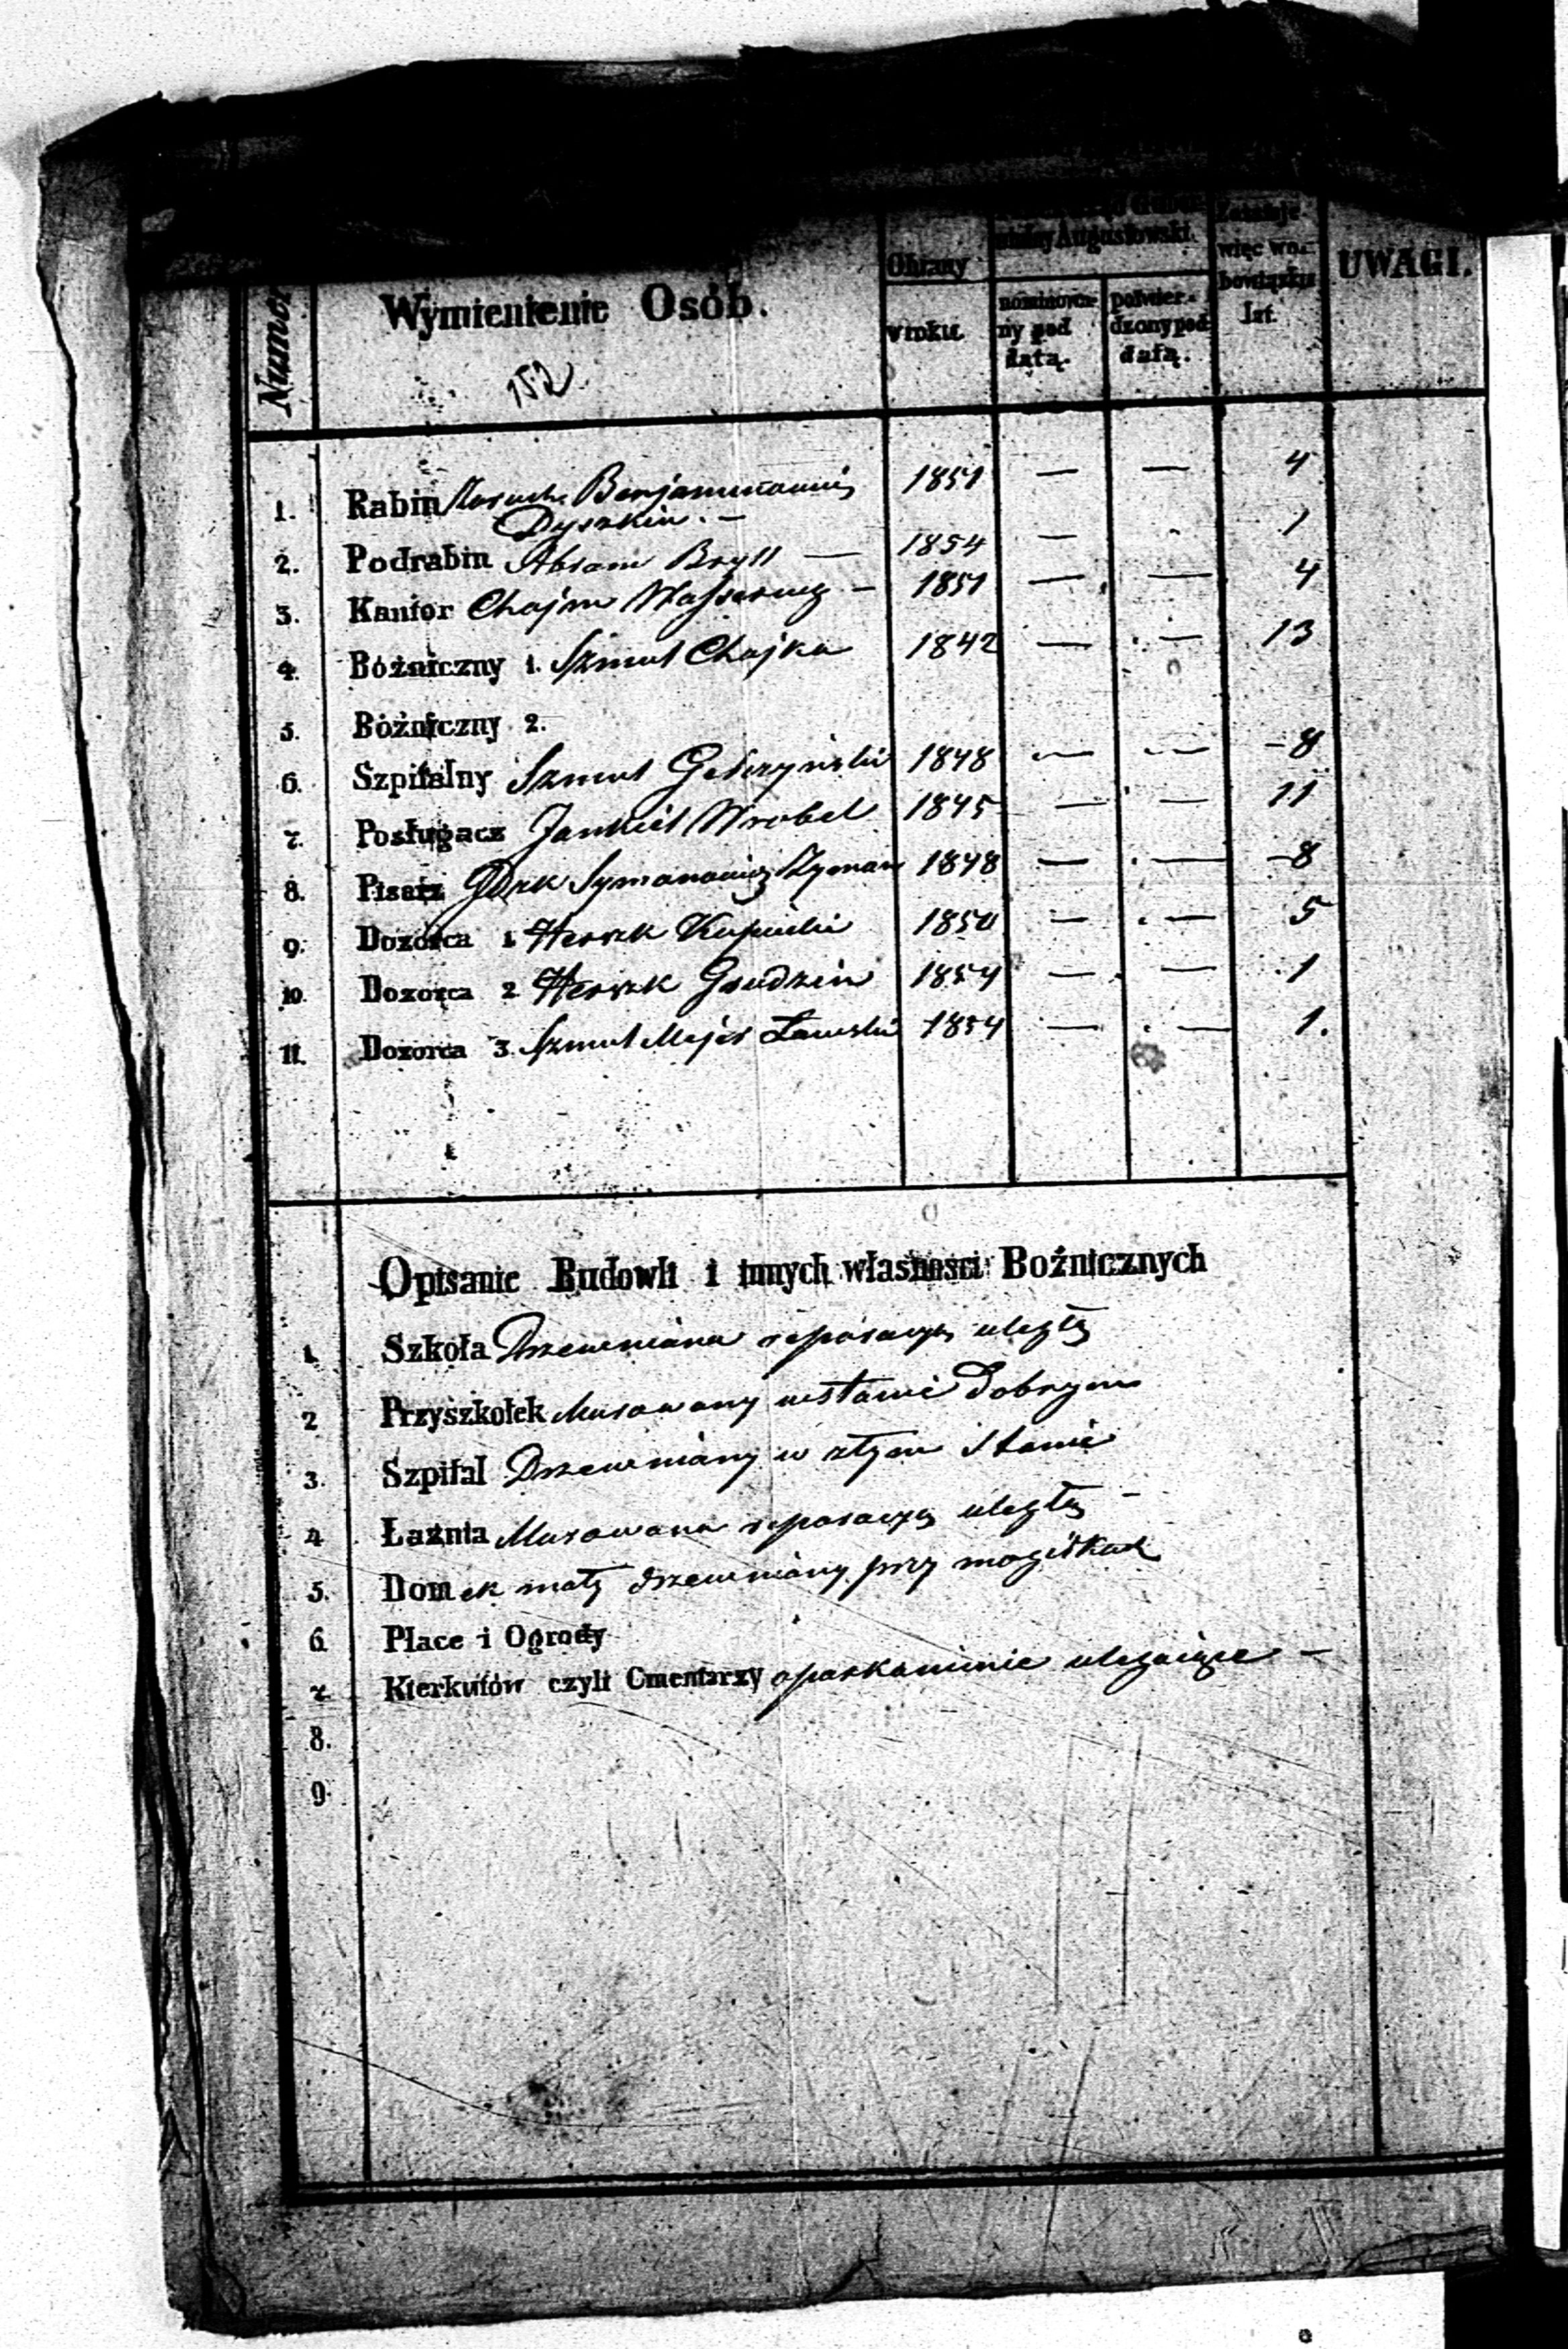 Numer
Wymienienie Osób.
Obrany
w roku.
Augustowski.
nominowa-
ny pod
datą.
potwier-
dzony pod
datą.
Zostaje
więc w o-
bowiązku
lat.
UWAGI.
152
1. Rabin Boruch Benjaminowicz 1851 — — 4
Dyszkin. —
2. Podrabin Abram Bryll — 1854 — - 1
3. Kantor Chajm 1851 — — 4
4. Bóżniczny 1. Szmul Chajka 1842 — — 13
5. Bóżniczny 2.
6. Szpitalny Szmul 1848 — — 8
7. Posługacz Jankiel Wrobel 1845 — — 11
8. Pisarz Symonowicz 1848 — — 8
9. Dozorca 1 Herszk 1850 — — 5
10. Dozorca 2 Herszk Grudzin 1854 — — 1
11. Dozorca 3 Szmul Mejer Ławski 1854 — — 1.
Opisanie Budowli i innych własnosci Bożnicznych
1. Szkoła Drzewniana reparacyi uległa
2 Przyszkołek Murowany w stanie Dobrym
3. Szpital Drzewniany w złym Stanie
4 Łaźnia Murowana reparacyi uległa —
5. Domek mały drzewniany przy mogiłkach
6. Place i Ogrody
7. Kierkutów czyli Cmentarzy oparkanienie ulegające —
8.
9.